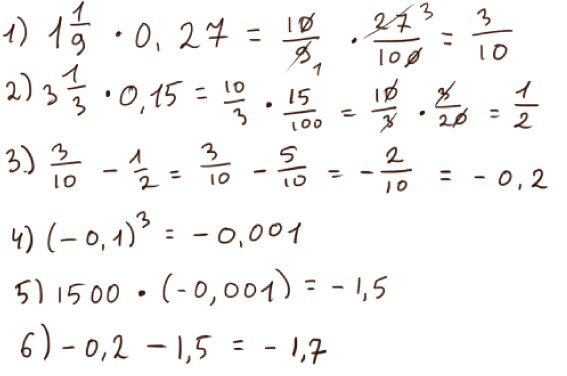 1) 1 1/9 · 0,27 = 10/9 1 · 27 3/100 = 3/10
2) 3 1/3 · 0,15 = 10/3 · 15/100 = 10/3 · 3/20 = 1/2
3) 3/10 - 1/2 = 3/10 - 5/10 = - 2/10 = - 0,2
4) (- 0,1)³ = - 0,001
5) 1500 · (- 0,001) = - 1,5
6) - 0,2 - 1,5 = - 1,7